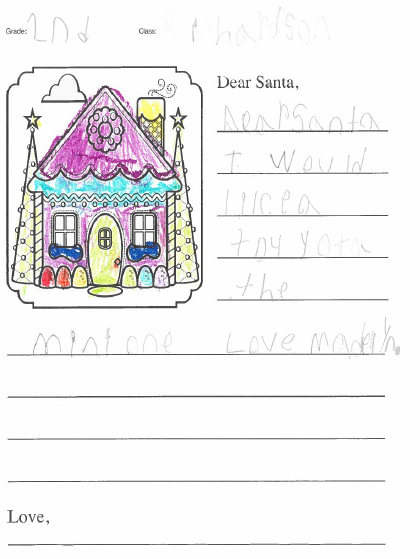 Grade: 2nd Class: Richardson
Dear Santa,
Dear Santa
I Would
Like a
toy Yoda
the
mini one Love
Love,